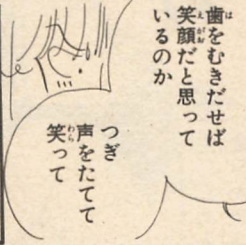 歯をむきだせば
笑顔だと思って
いるのか
つぎ
声をたてて
笑って